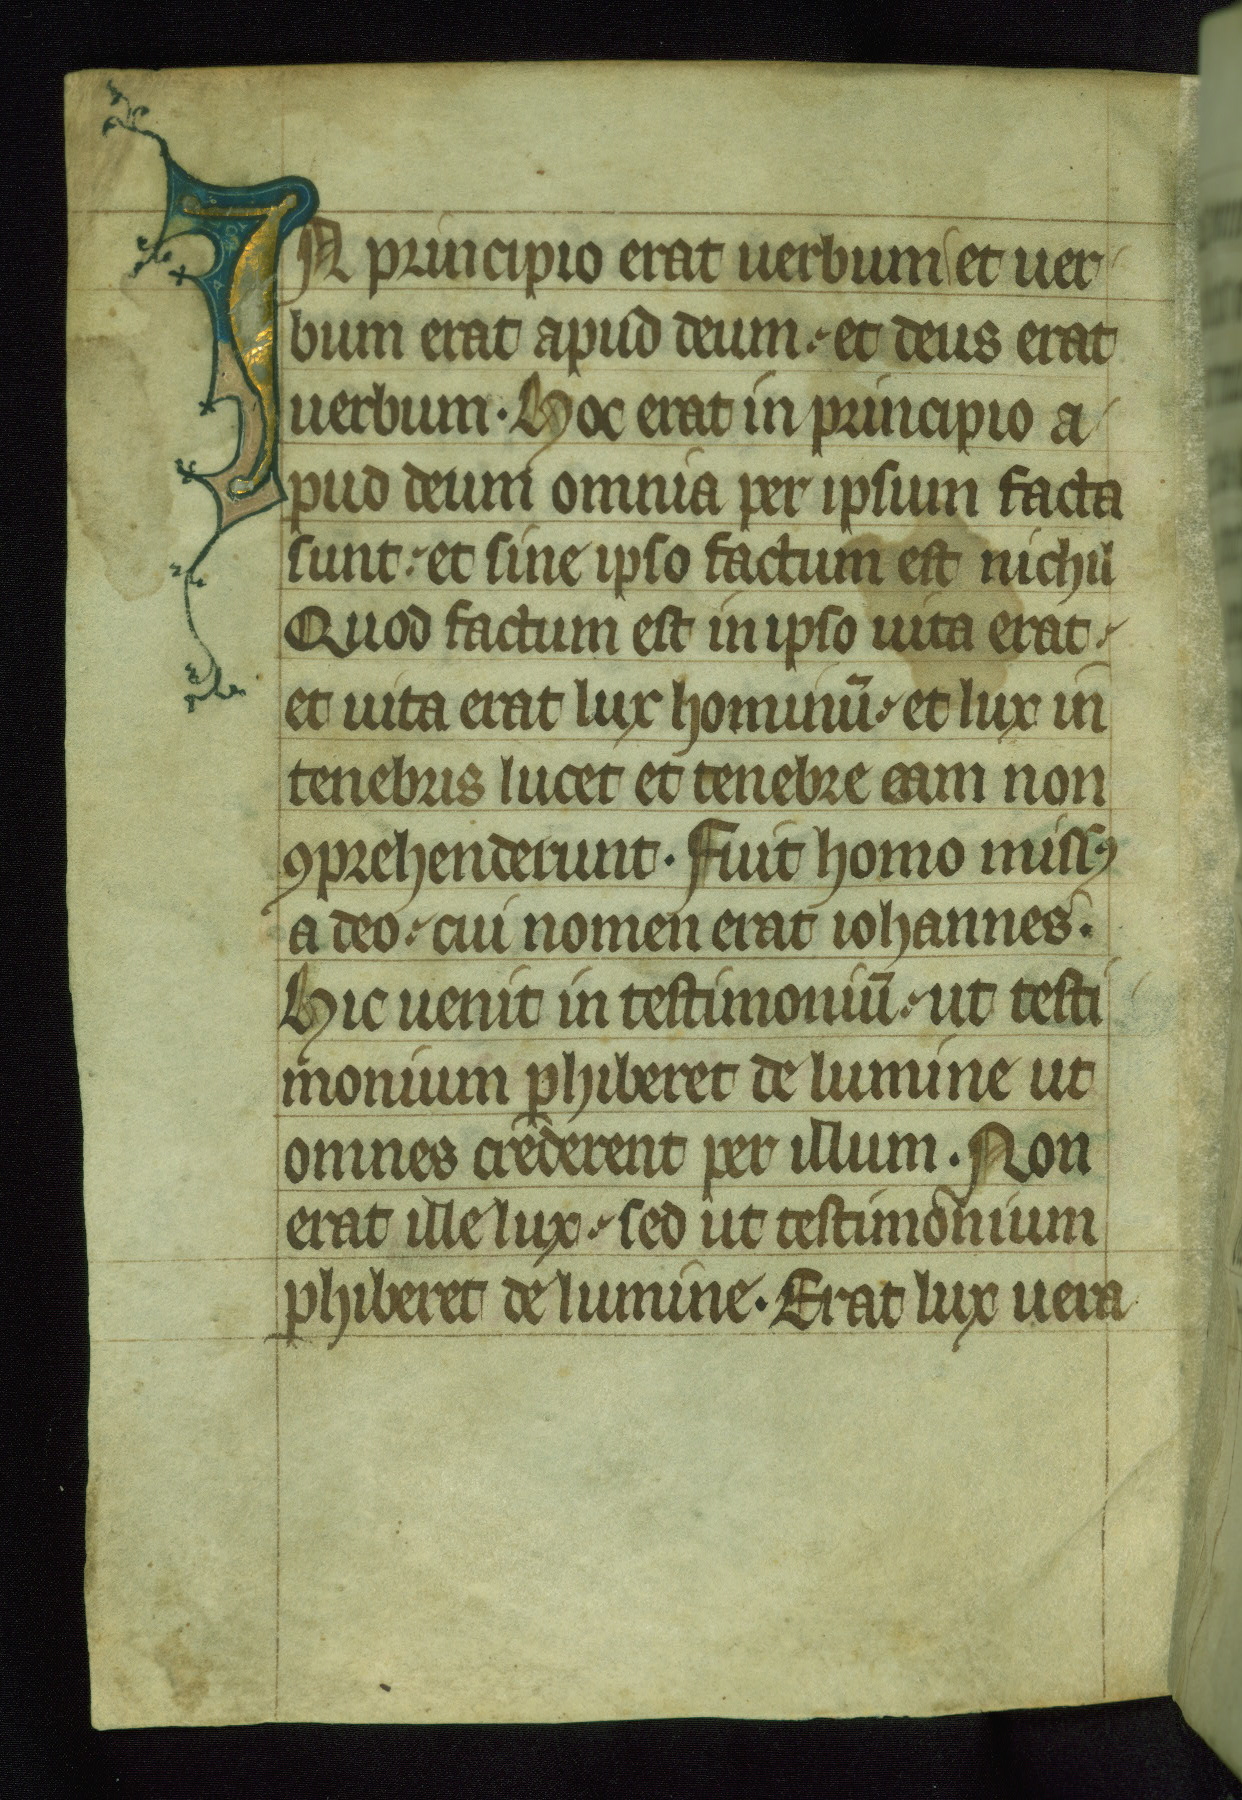 IN principio erat uerbum et uer
bum erat apud deum: et deus erat
uerbum. Hoc erat in principio a
pud deum omnia per ipsum facta
sunt: et sine ipso factum est nichil
Quod factum est in ipso uita erat:
et uita erat lux hominū: et lux in
tenebris lucet et tenebre eam non
ꝯprehenderunt. Fuit homo missꝰ
a deo: cui nomen erat iohannes.
Hic uenit in testimoniū: ut testi
monium ꝑhiberet de lumine ut
omnes crederent per illum. Non
erat ille lux: sed ut testimonium
ꝑhiberet de lumine. Erat lux uera